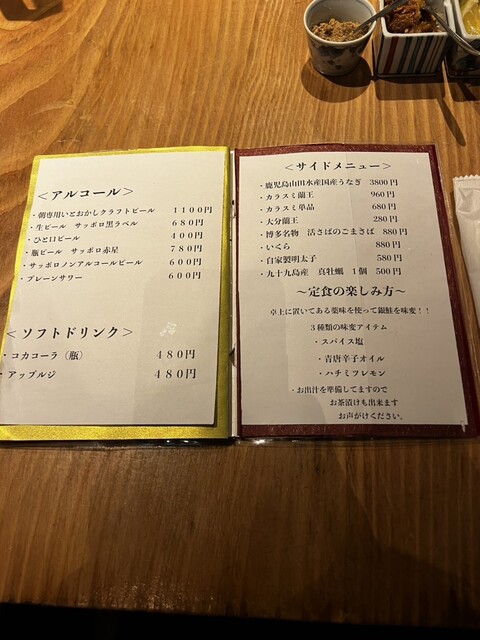 ＜アルコール＞
・朝専用いとおかしクラフトビール　１１００円
・生ビール　サッポロ黒ラベル　６８０円
・ひと口ビール　４００円
・瓶ビール　サッポロ赤星　７８０円
・サッポロノンアルコールビール　６００円
・プレーンサワー　６００円
＜ソフトドリンク＞
・コカコーラ（瓶）　４８０円
・アップルジ　４８０円
＜サイドメニュー＞
・鹿児島山田水産国産うなぎ　3800円
・カラスミ蘭王　960円
・カラスミ単品　680円
・大分蘭王　280円
・博多名物　活さばのごまさば　880円
・いくら　880円
・自家製明太子　580円
・九十九島産　真牡蠣　１個　500円
～定食の楽しみ方～
卓上に置いてある薬味を使って銀鮭を味変！！
３種類の味変アイテム
・スパイス塩
・青唐辛子オイル
・ハチミツレモン
・お出汁を準備してますので
お茶漬けも出来ます
お声がけください。